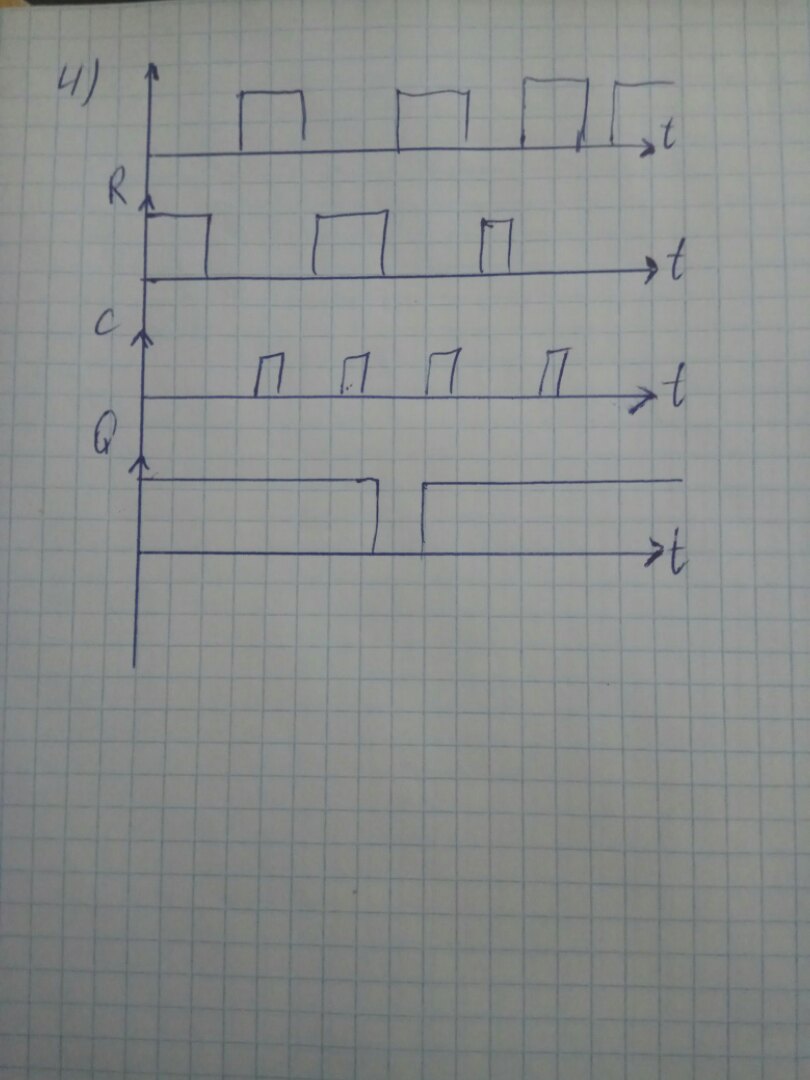 4)
t
R
t
C
t
Q
t